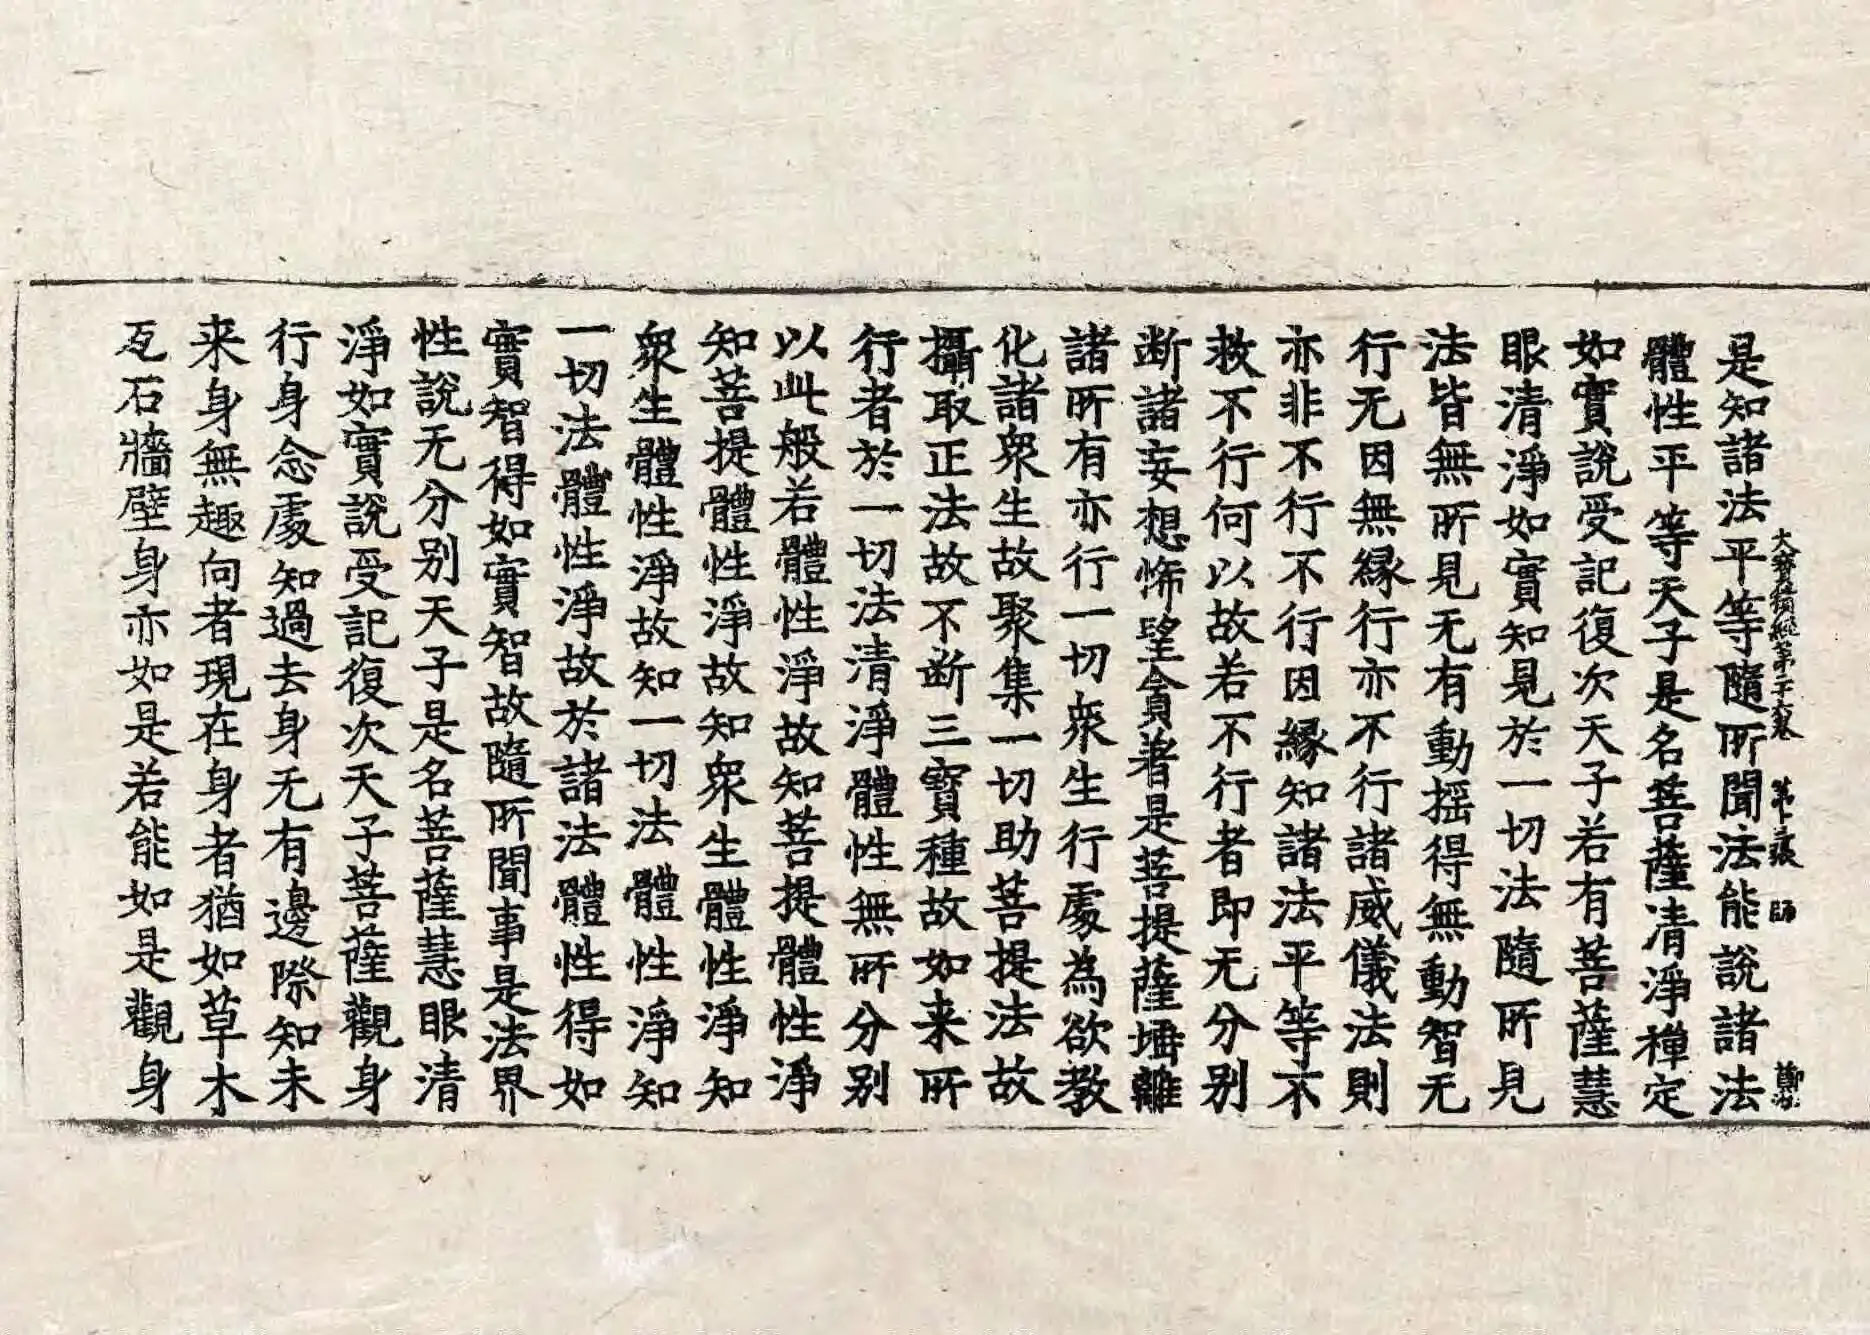 大寶積經第二十六卷 第十三張 師
是知諸法平等隨所聞法能說諸法
體性平等天子是名菩薩清淨禪定
如實說受記復次天子若有菩薩慧
眼清淨如實知見於一切法隨所見
法皆無所見无有動摇得無動智无
行无因無緣行亦不行諸威儀法則
亦非不行不行因緣知諸法平等不
救不行何以故若不行者即无分别
断諸妄想悕望貪著是菩提薩埵離
諸所有亦行一切衆生行處為欲教
化諸衆生故聚集一切助菩提法故
攝取正法故不断三寶種故如来所
行者於一切法清淨體性無所分别
以此般若體性淨故知菩提體性淨
知菩提體性淨故知衆生體性淨知
衆生體性淨故知一切法體性淨知
一切法體性淨故於諸法體性得如
實智得如實智故隨所聞事是法界
性說无分别天子是名菩薩慧眼清
淨如實說受記復次天子菩薩觀身
行身念處知過去身无有邊際知未
来身無趣向者現在身者猶如草木
瓦石牆壁身亦如是若能如是觀身